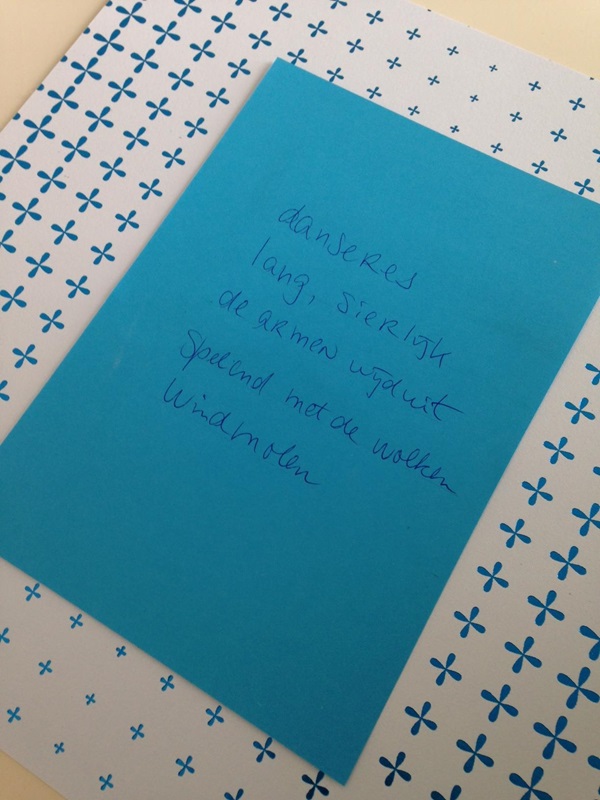 danseres
lang, sierlijk
de armen wijduit
Spelend met de wolken
Windmolen